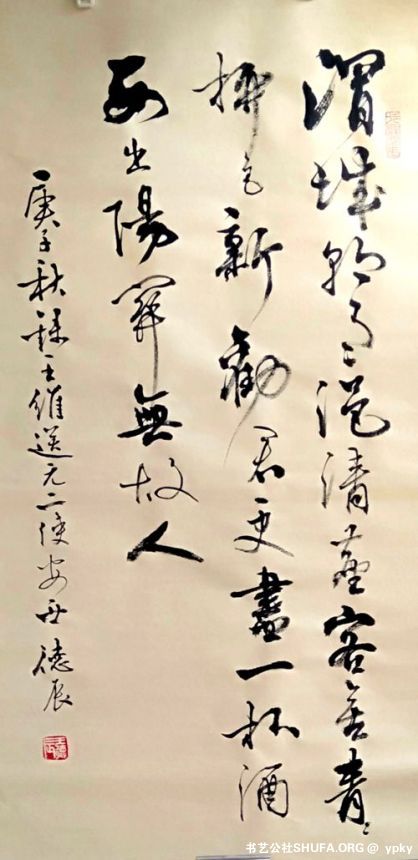 渭城朝雨浥清塵客舍青〻
柳色新勸君更盡一杯酒
西出陽關無故人
庚子秋錄王維送元二使安西 德辰
书艺公社SHUFA.ORG @ ypky